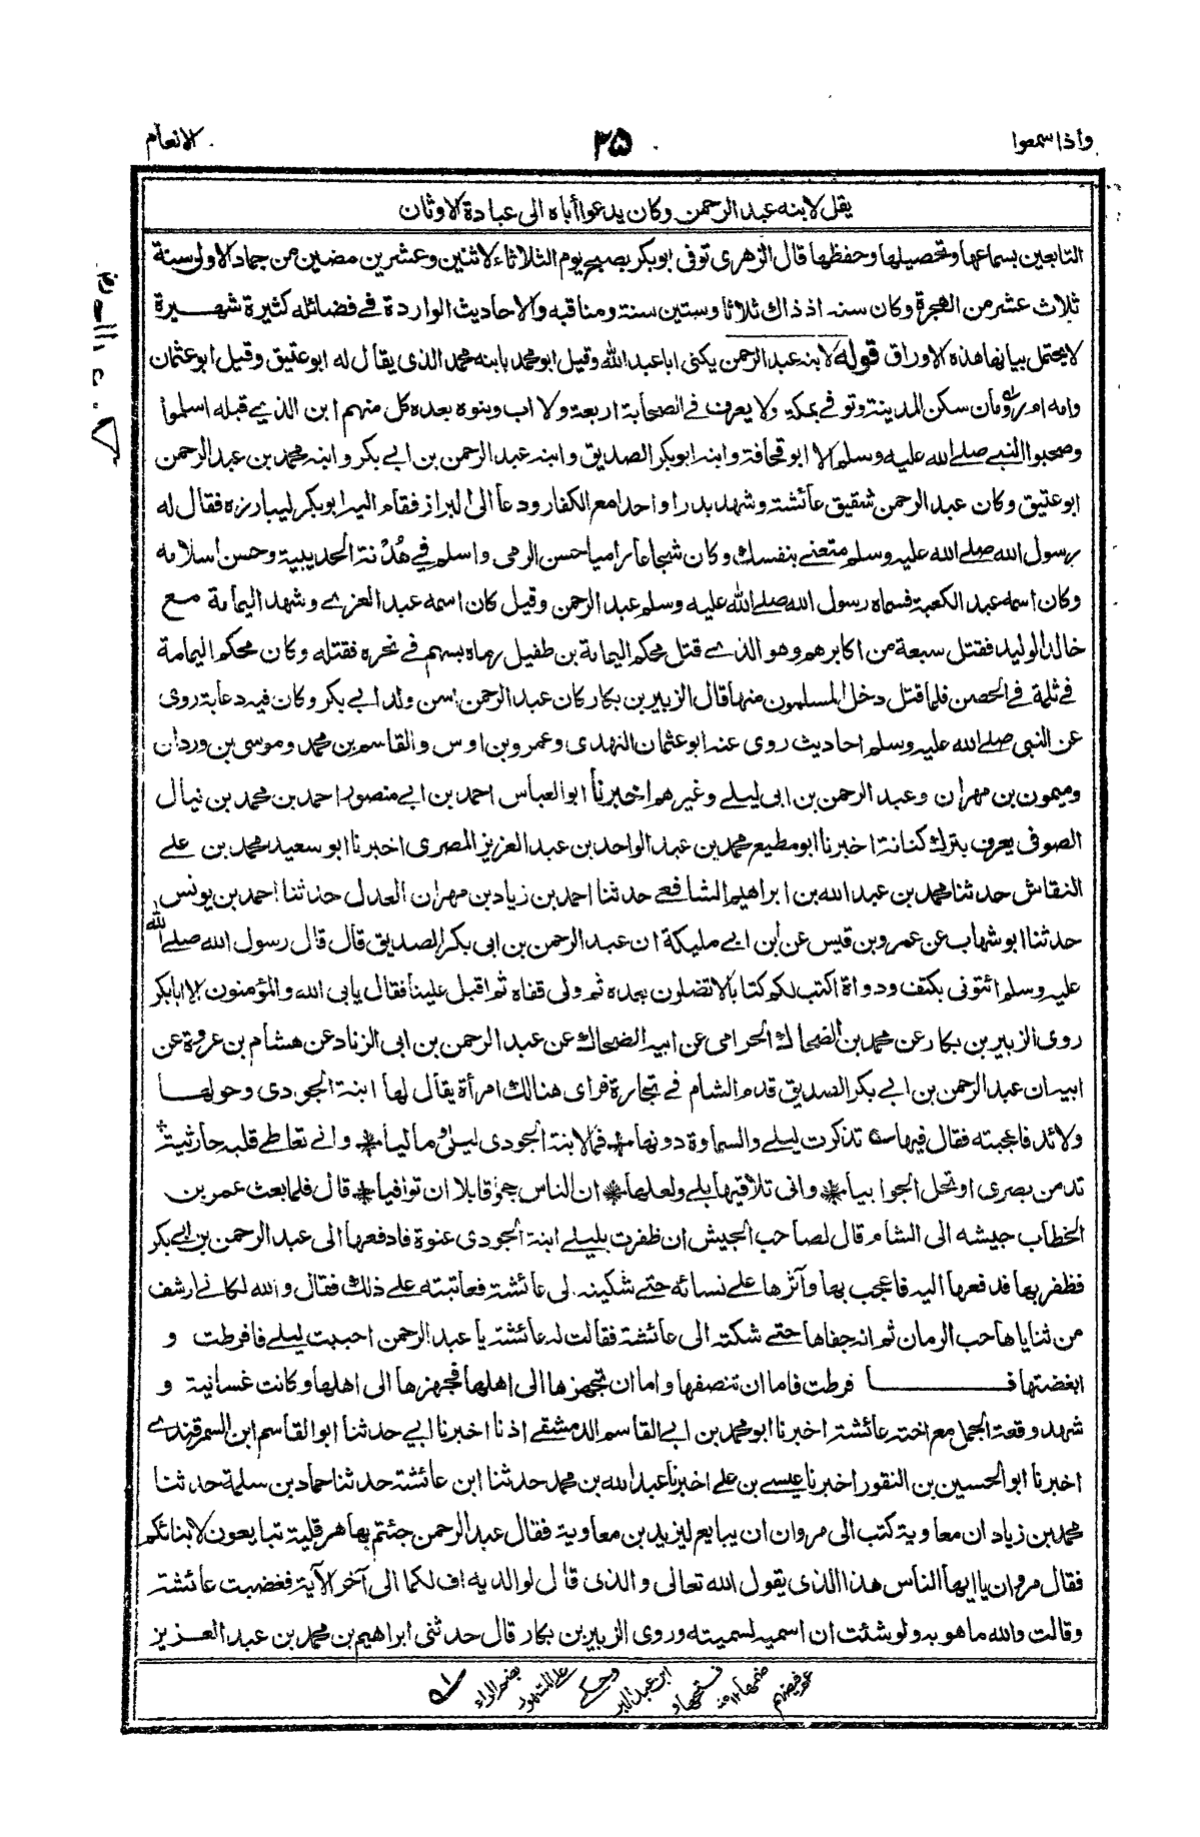 واذا سمعوا
٢٥
الانعام
يقل لابنه عبد الرحمن وكان يدعوا أباه الى عبادة الاوثان
التابعين بسماعها وتحصيلها وحفظها قال الزهرى توفى ابو بكر بصبح يوم الثلاثاء لاثنين وعشرين مضين من جماد الاولى سنة
ثلاث عشر من الهجرة وكان سنه اذ ذاك ثلاثا وستين سنة ومناقبه والاحاديث الواردة في فضائله كثيرة شهيرة
لا يحتمل بيانها هذه الاوراق قوله لابنه عبد الرحمن يكنى ابا عبد الله وقيل ابو محمد بابنه محمد الذى يقال له ابو عتيق وقيل ابو عثمان
وامه ام رومان سكن المدينة وتوفى بمكة ولا يعرف في الصحابة اربعة ولا اب وبنوه بعده كل منهم ابن الذي قبله اسلموا
وصحبوا النبي صلى الله عليه وسلم الا ابو قحافة وابنه ابو بكر الصديق وابنه عبد الرحمن بن ابي بكر وابنه محمد بن عبد الرحمن
ابو عتيق وكان عبد الرحمن شقيق عائشة وشهد بدرا واحدا مع الكفار ودعا الى البراز فقام اليه ابو بكر ليبارزه فقال له
رسول الله صلى الله عليه وسلم متعني بنفسك وكان شجاعا راميا حسن الرمى واسلم في هُدْنة الحديبية وحسن اسلامه
وكان اسمه عبد الكعبة فسماه رسول الله صلى الله عليه وسلم عبد الرحمن وقيل كان اسمه عبد العزى وشهد اليمامة مع
خالد الوليد فقتل سبعة من اكابرهم وهو الذي قتل محكم اليمامة بن طفيل رماه بسهم في نحره فقتله وكان محكم اليمامة
في ثلمة في الحصن فلما قتل دخل المسلمون منها قال الزبير بن بكار كان عبد الرحمن اسن ولد ابي بكر وكان فيه دعابة روى
عن النبى صلى الله عليه وسلم احاديث روى عنه ابو عثمان النهدى وعمرو بن اوس والقاسم بن محمد وموسى بن وردان
وميمون بن مهران وعبد الرحمن بن ابى ليلى وغيرهم اخبرنا ابو العباس احمد بن ابي منصور احمد بن محمد بن نيال
الصوفى يعرف بترك كنانة اخبرنا ابو مطيع محمد بن عبد الواحد بن عبد العزيز المصرى اخبرنا ابو سعيد محمد بن علي
النقاش حدثنا محمد بن عبد الله بن ابراهيم الشافعي حدثنا احمد بن زياد بن مهران العدل حدثنا احمد بن يونس
حدثنا ابو شهاب عن عمرو بن قيس عن ابن ابي مليكة ان عبد الرحمن بن ابى بكر الصديق قال قال رسول الله صلى الله
عليه وسلم ائتونى بكتف ودواة اكتب لكم كتابا لا تضلون بعده ثم ولى قفاه ثم اقبل علينا فقال يابى الله والمؤمنون الا ابا بكر
روى الزبير بن بكار عن محمد بن الضحاك الحرامى عن ابيه الضحاك عن عبد الرحمن بن ابى الزناد عن هشام بن عروة عن
ابيه ان عبد الرحمن بن ابي بكر الصديق قدم الشام في تجارة فراى هنالك امرأة يقال لها ابنة الجودى وحولها
ولائد فاعجبته فقال فيها تذكرت ليلى والسماوة دونها * فما لابنة الجودى ليلى وما ليا * وانى تعاطى قلبه حارثية *
تدمن بصرى او تحل الجوابيا * وانى تلاقيها بلى ولعلها * ان الناس حجوا قابلا ان توافيا * قال فلما بعث عمر بن
الخطاب جيشه الى الشام قال لصاحب الجيش ان ظفرت بليلى ابنة الجودى عنوة فادفعها الى عبد الرحمن بن ابي بكر
فظفر بها فدفعها اليه فاعجب بها وآثرها على نسائه حتى شكينه الى عائشة فعاتبته على ذلك فقال والله لكاني ارشف
من ثناياها حب الرمان ثم انه جفاها حتى شكته الى عائشة فقالت له عائشة يا عبد الرحمن احببت ليلى فافرطت و
ابغضتها فافرطت فاما ان تنصفها واما ان تجهزها الى اهلها فجهزها الى اهلها وكانت غسانية و
شهد وقعة الجمل مع اخته عائشة اخبرنا ابو محمد بن ابي القاسم الدمشقي اذنا اخبرنا ابي حدثنا ابو القاسم ابن السمرقندي
اخبرنا ابو الحسين بن النقور اخبرنا عيسى بن علي اخبرنا عبد الله بن محمد حدثنا ابن عائشة حدثنا حماد بن سلمة حدثنا
محمد بن زياد ان معاوية كتب الى مروان ان يبايع ليزيد بن معاوية فقال عبد الرحمن جئتم بها هرقلية تبايعون لابنائكم
فقال مروان يا ايها الناس هذا الذى يقول الله تعالى والذى قال لوالديه اف لكما الى آخر الآية فغضبت عائشة
وقالت والله ما هو به ولو شئت ان اسميه لسميته وروى الزبير بن بكار قال حدثنى ابراهيم بن محمد بن عبد العزيز
بضم الراء